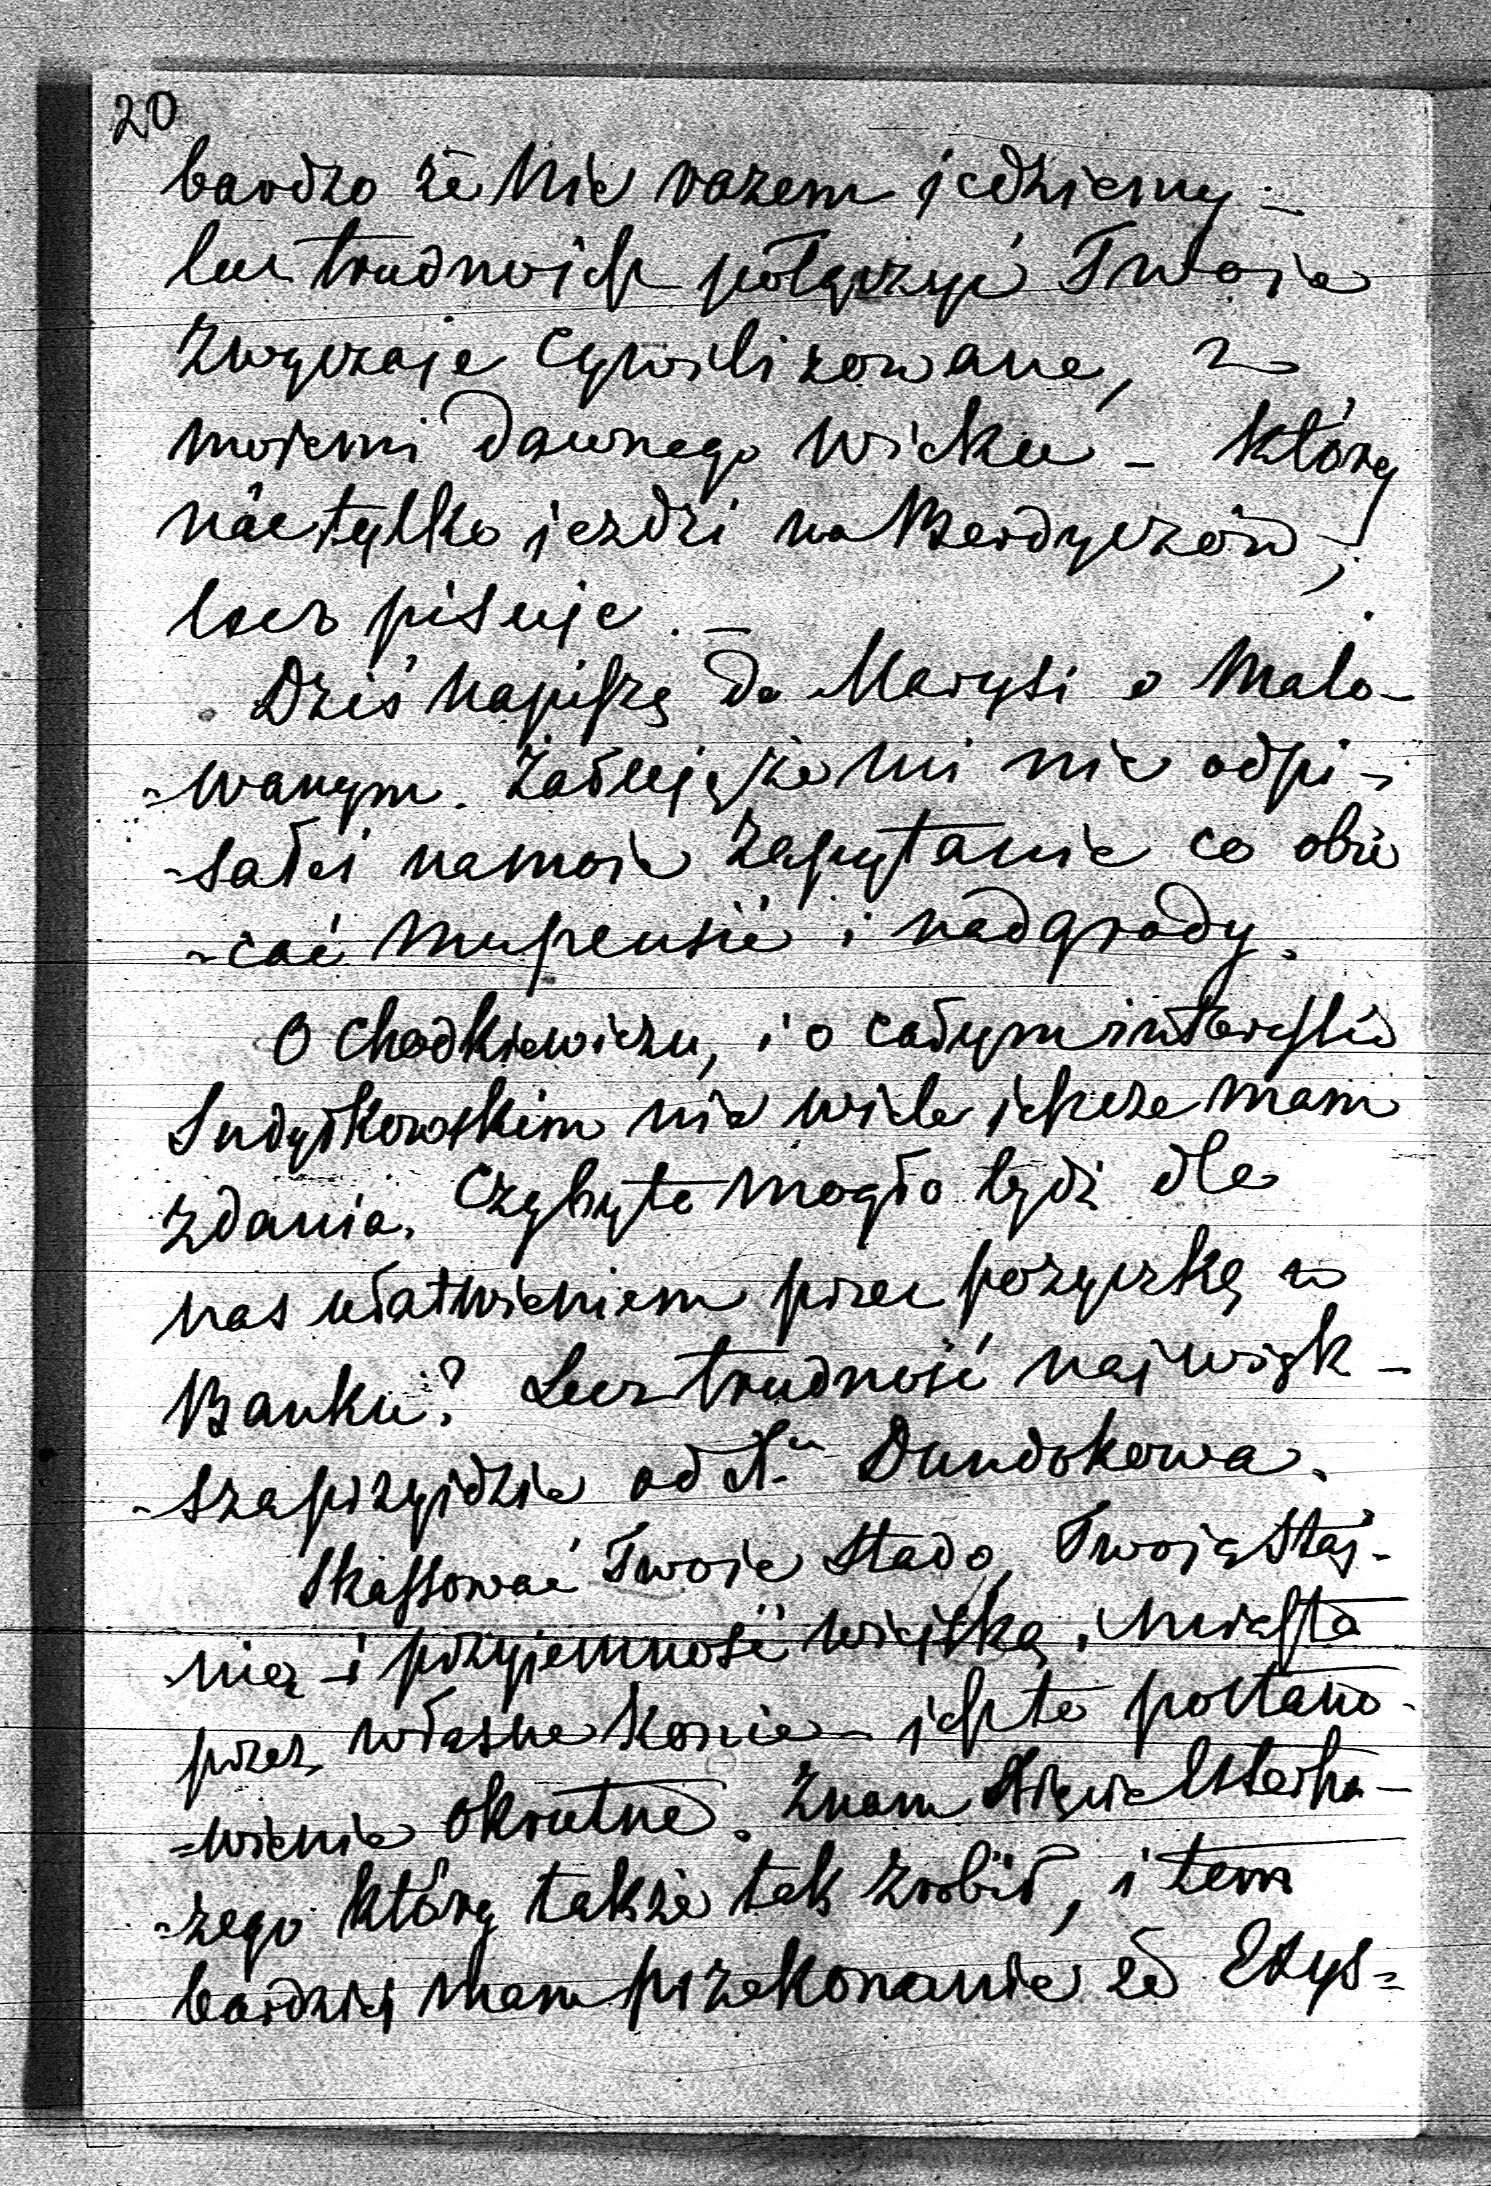 20
bardzo że nie razem jedziemy –
lecz trudno ich połączyć Twoie
zwyczaje cywilizowane, z
mojemi dawnego wieku – który
nie tylko jezdzi na Berdyczów,
lecz pisuje. –
Dziś napiszę do Marysi o Malo-
-wanym. Żałuję że mi nie odpi-
-sałeś na moie zapytanie co obie
-cać mu pensii i nadgrody.
O Chodkiewiczu, i o całym interessie
nie wiele ieszcze mam
zdania. Czy by to mogło bydź dla
nas ułatwieniem przez pozyczkę w
Banku? Lecz trudność najwięk-
-sza przyidzie od Dundukowa.
Skassować Twoie stado, Twoią staj-
nię – i przyjemność wiejską, i miasta
przez własne konie – jest to postano-
-wienie okrutne. Znam
-zego który także tak zrobił, i tem
bardziej mam przekonanie że Edys-